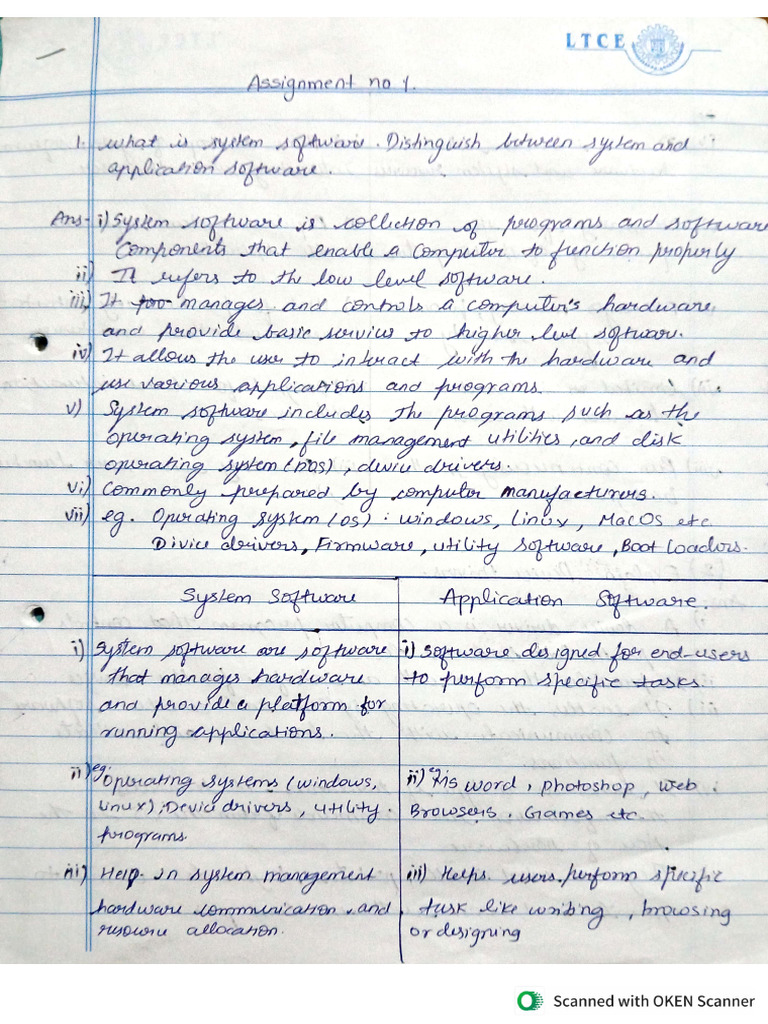 LTCE
Assignment no 1.
1. what is system software. Distinguish between system and
application software.
Ans- i) System software is collection of programs and software
components that enable a computer to function properly
ii) It refers to the low level software.
iii) It manages and controls a computer's hardware
and provide basic servies to higher level software.
iv) It allows the user to interact with the hardware and
use various applications and programs.
v) System software includes the programs such as the
operating system, file management utilities, and disk
operating system (DOS), device drivers.
vi) Commonly prepared by computer manufacturers.
vii) eg. Operating system (OS) : windows, Linux, MacOS etc
Divice drivers, Firmware, utility software, Boot loadors.
System Software
Application Software.
i) System software are software
that manages hardware
and provide a platform for
running applications.
i) Software designed for end-users
to perform specific tasks.
ii) eg: Operating systems (windows,
Linux), Device drivers, utility
programs.
ii) eg MS word, photoshop, web
Browsers, Games etc.
iii) Help in system management
hardware communication, and
resource allocation.
iii) Helps users perform specific
task like writing, browsing
or designing
Scanned with OKEN Scanner